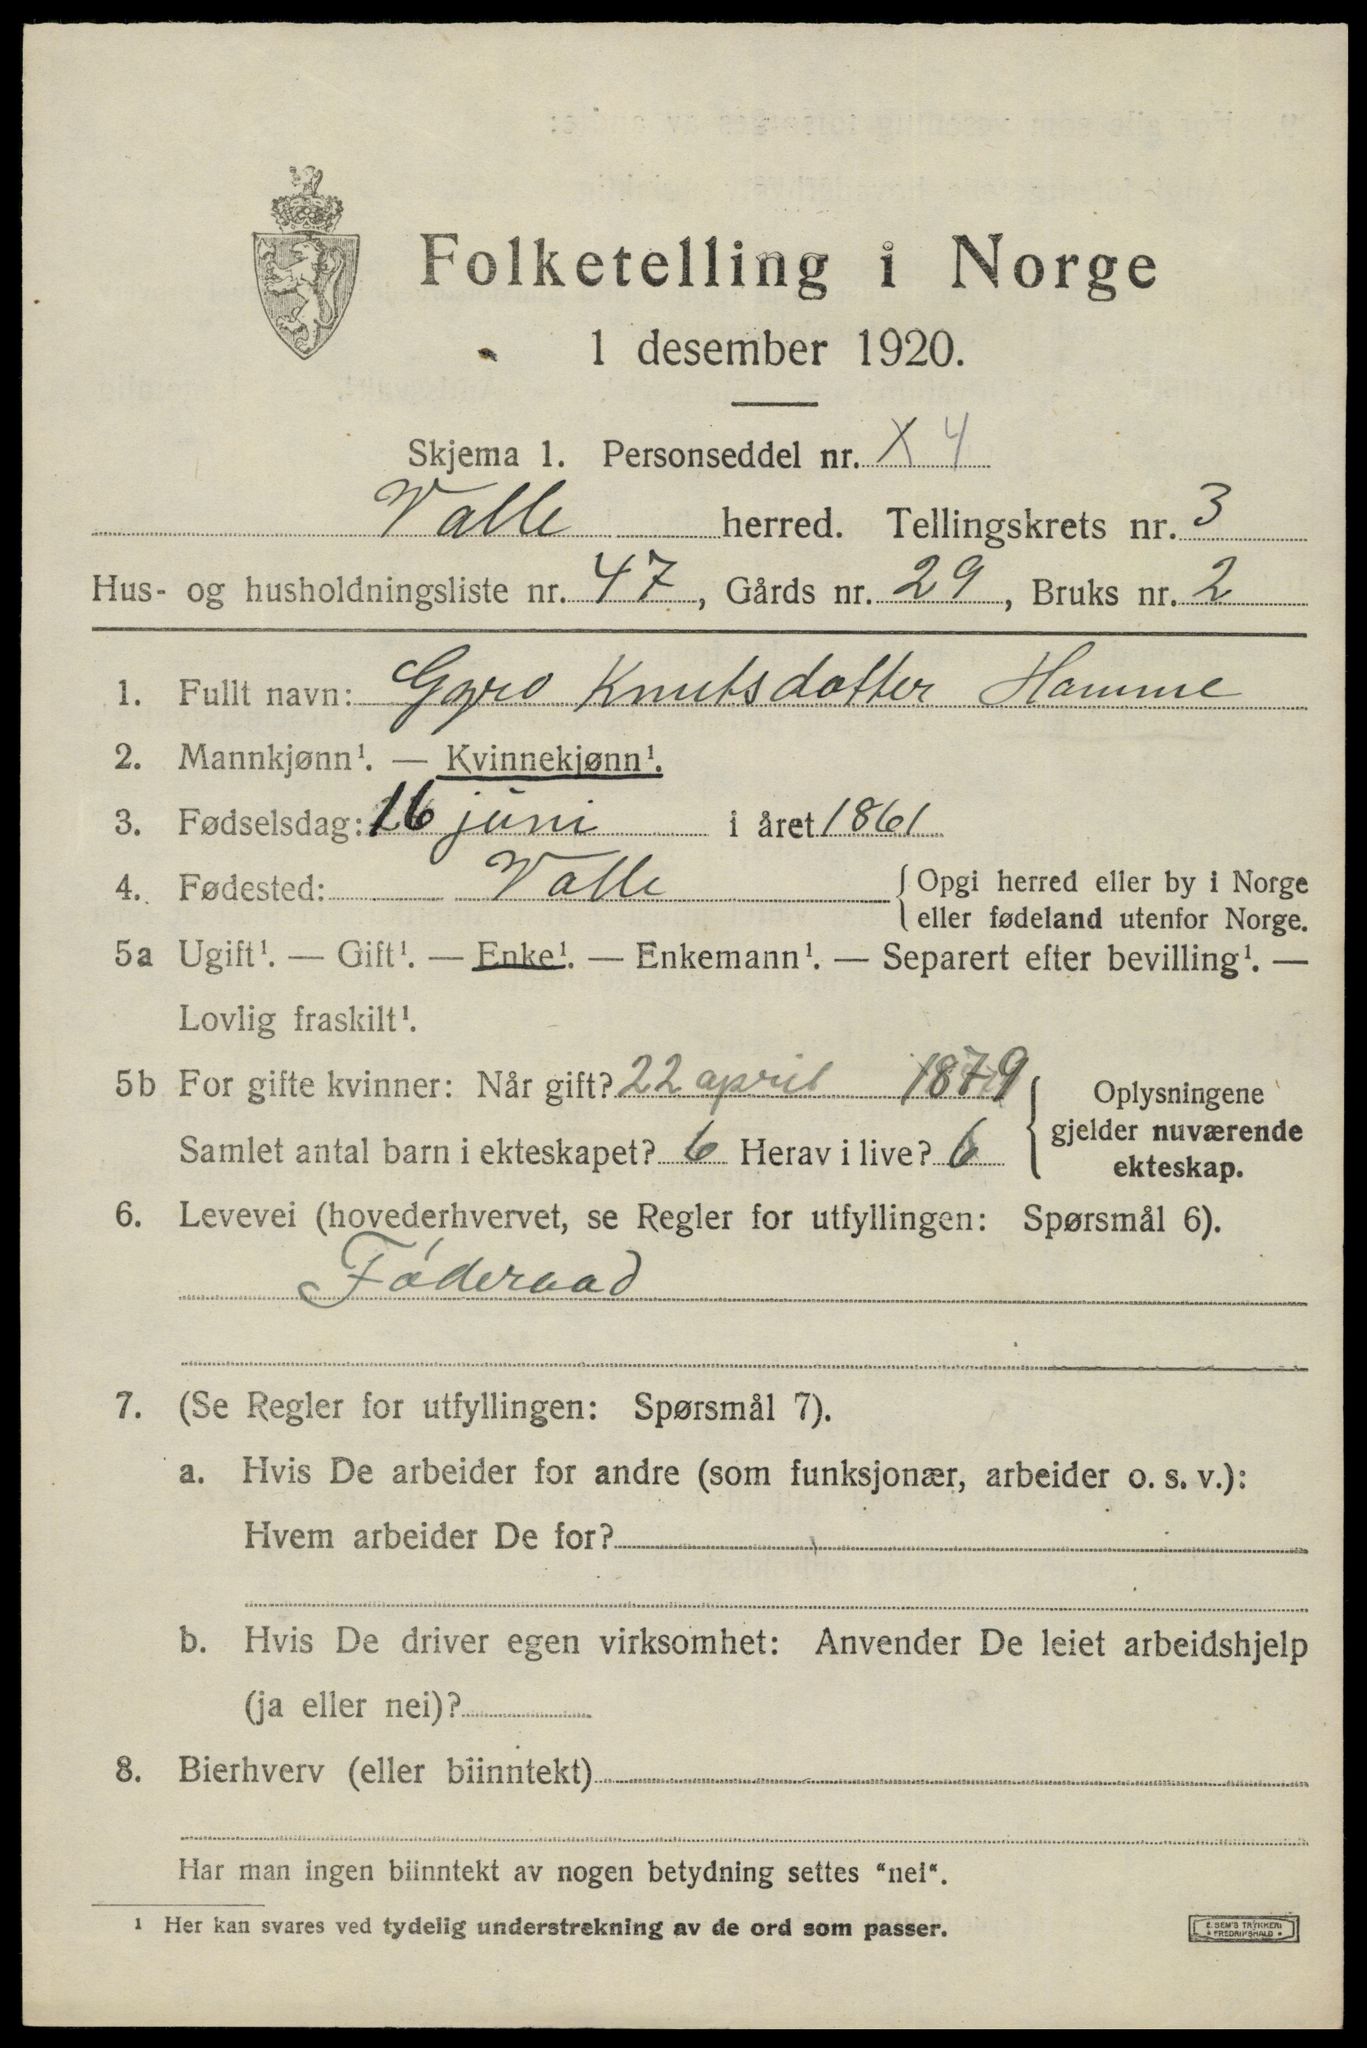 Folketelling i Norge
1 desember 1920.
Skjema 1. Personseddel nr. X 4
Valle herred. Tellingskrets nr. 3
Hus- og husholdningsliste nr. 47, Gårds nr. 29, Bruks nr. 2
1. Fullt navn: Gyro Knutsdatter Homme
2. Mannkjønn¹. — Kvinnekjønn¹.
3. Fødselsdag: 16 juni i året 1861
4. Fødested: Valle { Opgi herred eller by i Norge
eller fødeland utenfor Norge.
5a Ugift¹. — Gift¹. — Enke¹. — Enkemann¹. — Separert efter bevilling¹. —
Lovlig fraskilt¹.
5b For gifte kvinner: Når gift? 22 april 1879
Samlet antal barn i ekteskapet? 6 Herav i live? 6
Oplysningene
gjelder nuværende
ekteskap.
6. Levevei (hovederhvervet, se Regler for utfyllingen: Spørsmål 6).
Føderaad
7. (Se Regler for utfyllingen: Spørsmål 7).
a. Hvis De arbeider for andre (som funksjonær, arbeider o. s. v.):
Hvem arbeider De for?
b. Hvis De driver egen virksomhet: Anvender De leiet arbeidshjelp
(ja eller nei)?
8. Bierhverv (eller biinntekt)
Har man ingen biinntekt av nogen betydning settes "nei".
¹ Her kan svares ved tydelig understrekning av de ord som passer.
E. SEM'S TRYKKERI
FREDRIKSHALD